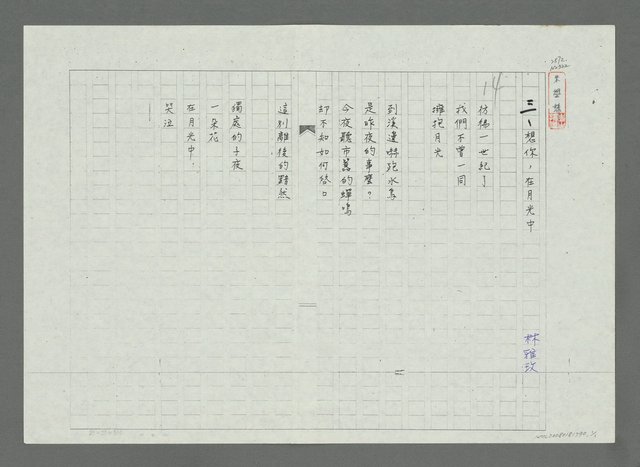 14
三、想你，在月光中
林雅玫
彷彿一世紀了
我們不曾一同
擁抱月光
到溪邊嚇跑水鳥
是昨夜的事麼？
今夜聽市簷的蟬鳴
却不知如何啓口
這別離後的黯然
獨處的子夜
一朵花
在月光中，
哭泣